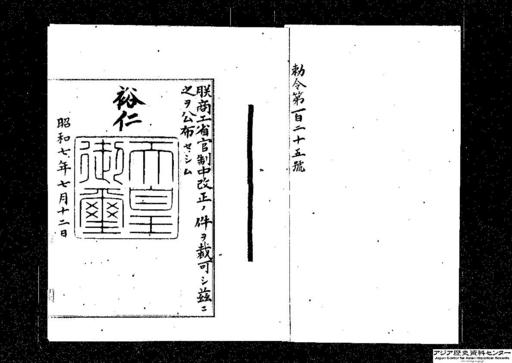 勅令第一百二十五號
朕商工省官制中改正ノ件ヲ裁可シ茲ニ
之ヲ公布セシム
裕仁
天皇
御璽
昭和七年七月十二日
アジア歴史資料センター
Japan Center for Asian Historical Records